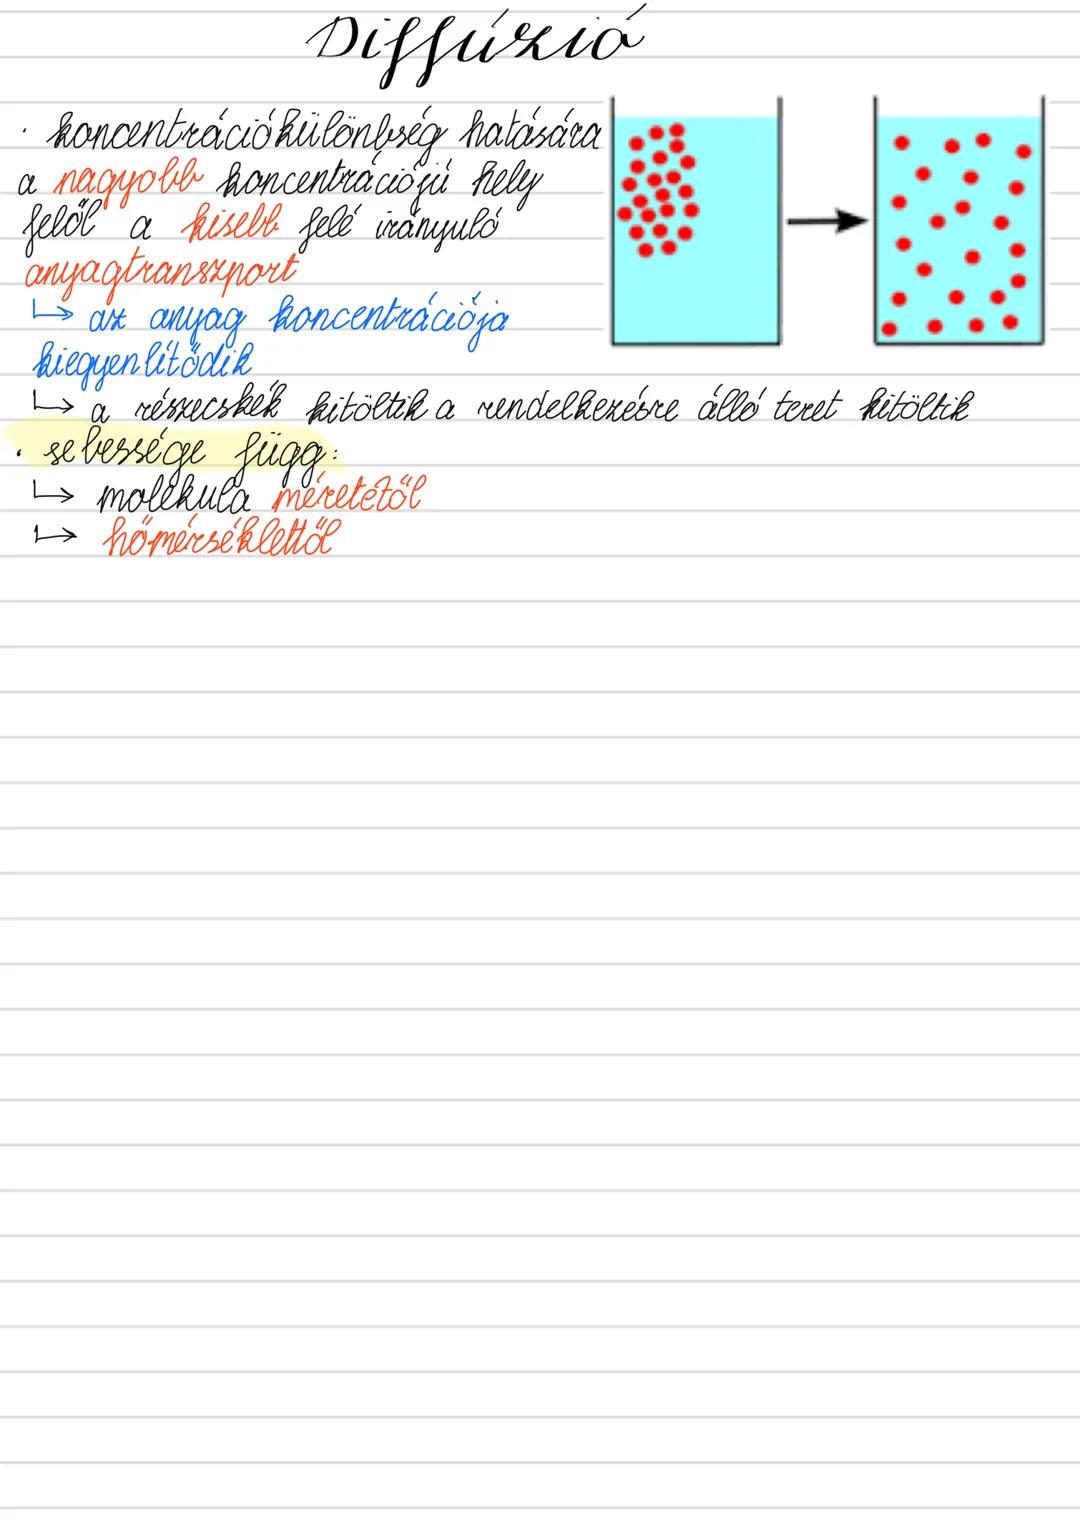 Diffúzió
· koncentrációkülönbség hatására
a nagyobb koncentrációjú hely
felől a kisebb felé irányuló
anyagtranszport
↳ az anyag koncentrációja
kiegyenlítődik
↳ a részecskék kitöltik a rendelkezésre álló teret kitöltik
· sebessége függ:
↳ molekula méretétől
↳ hőmérséklettől